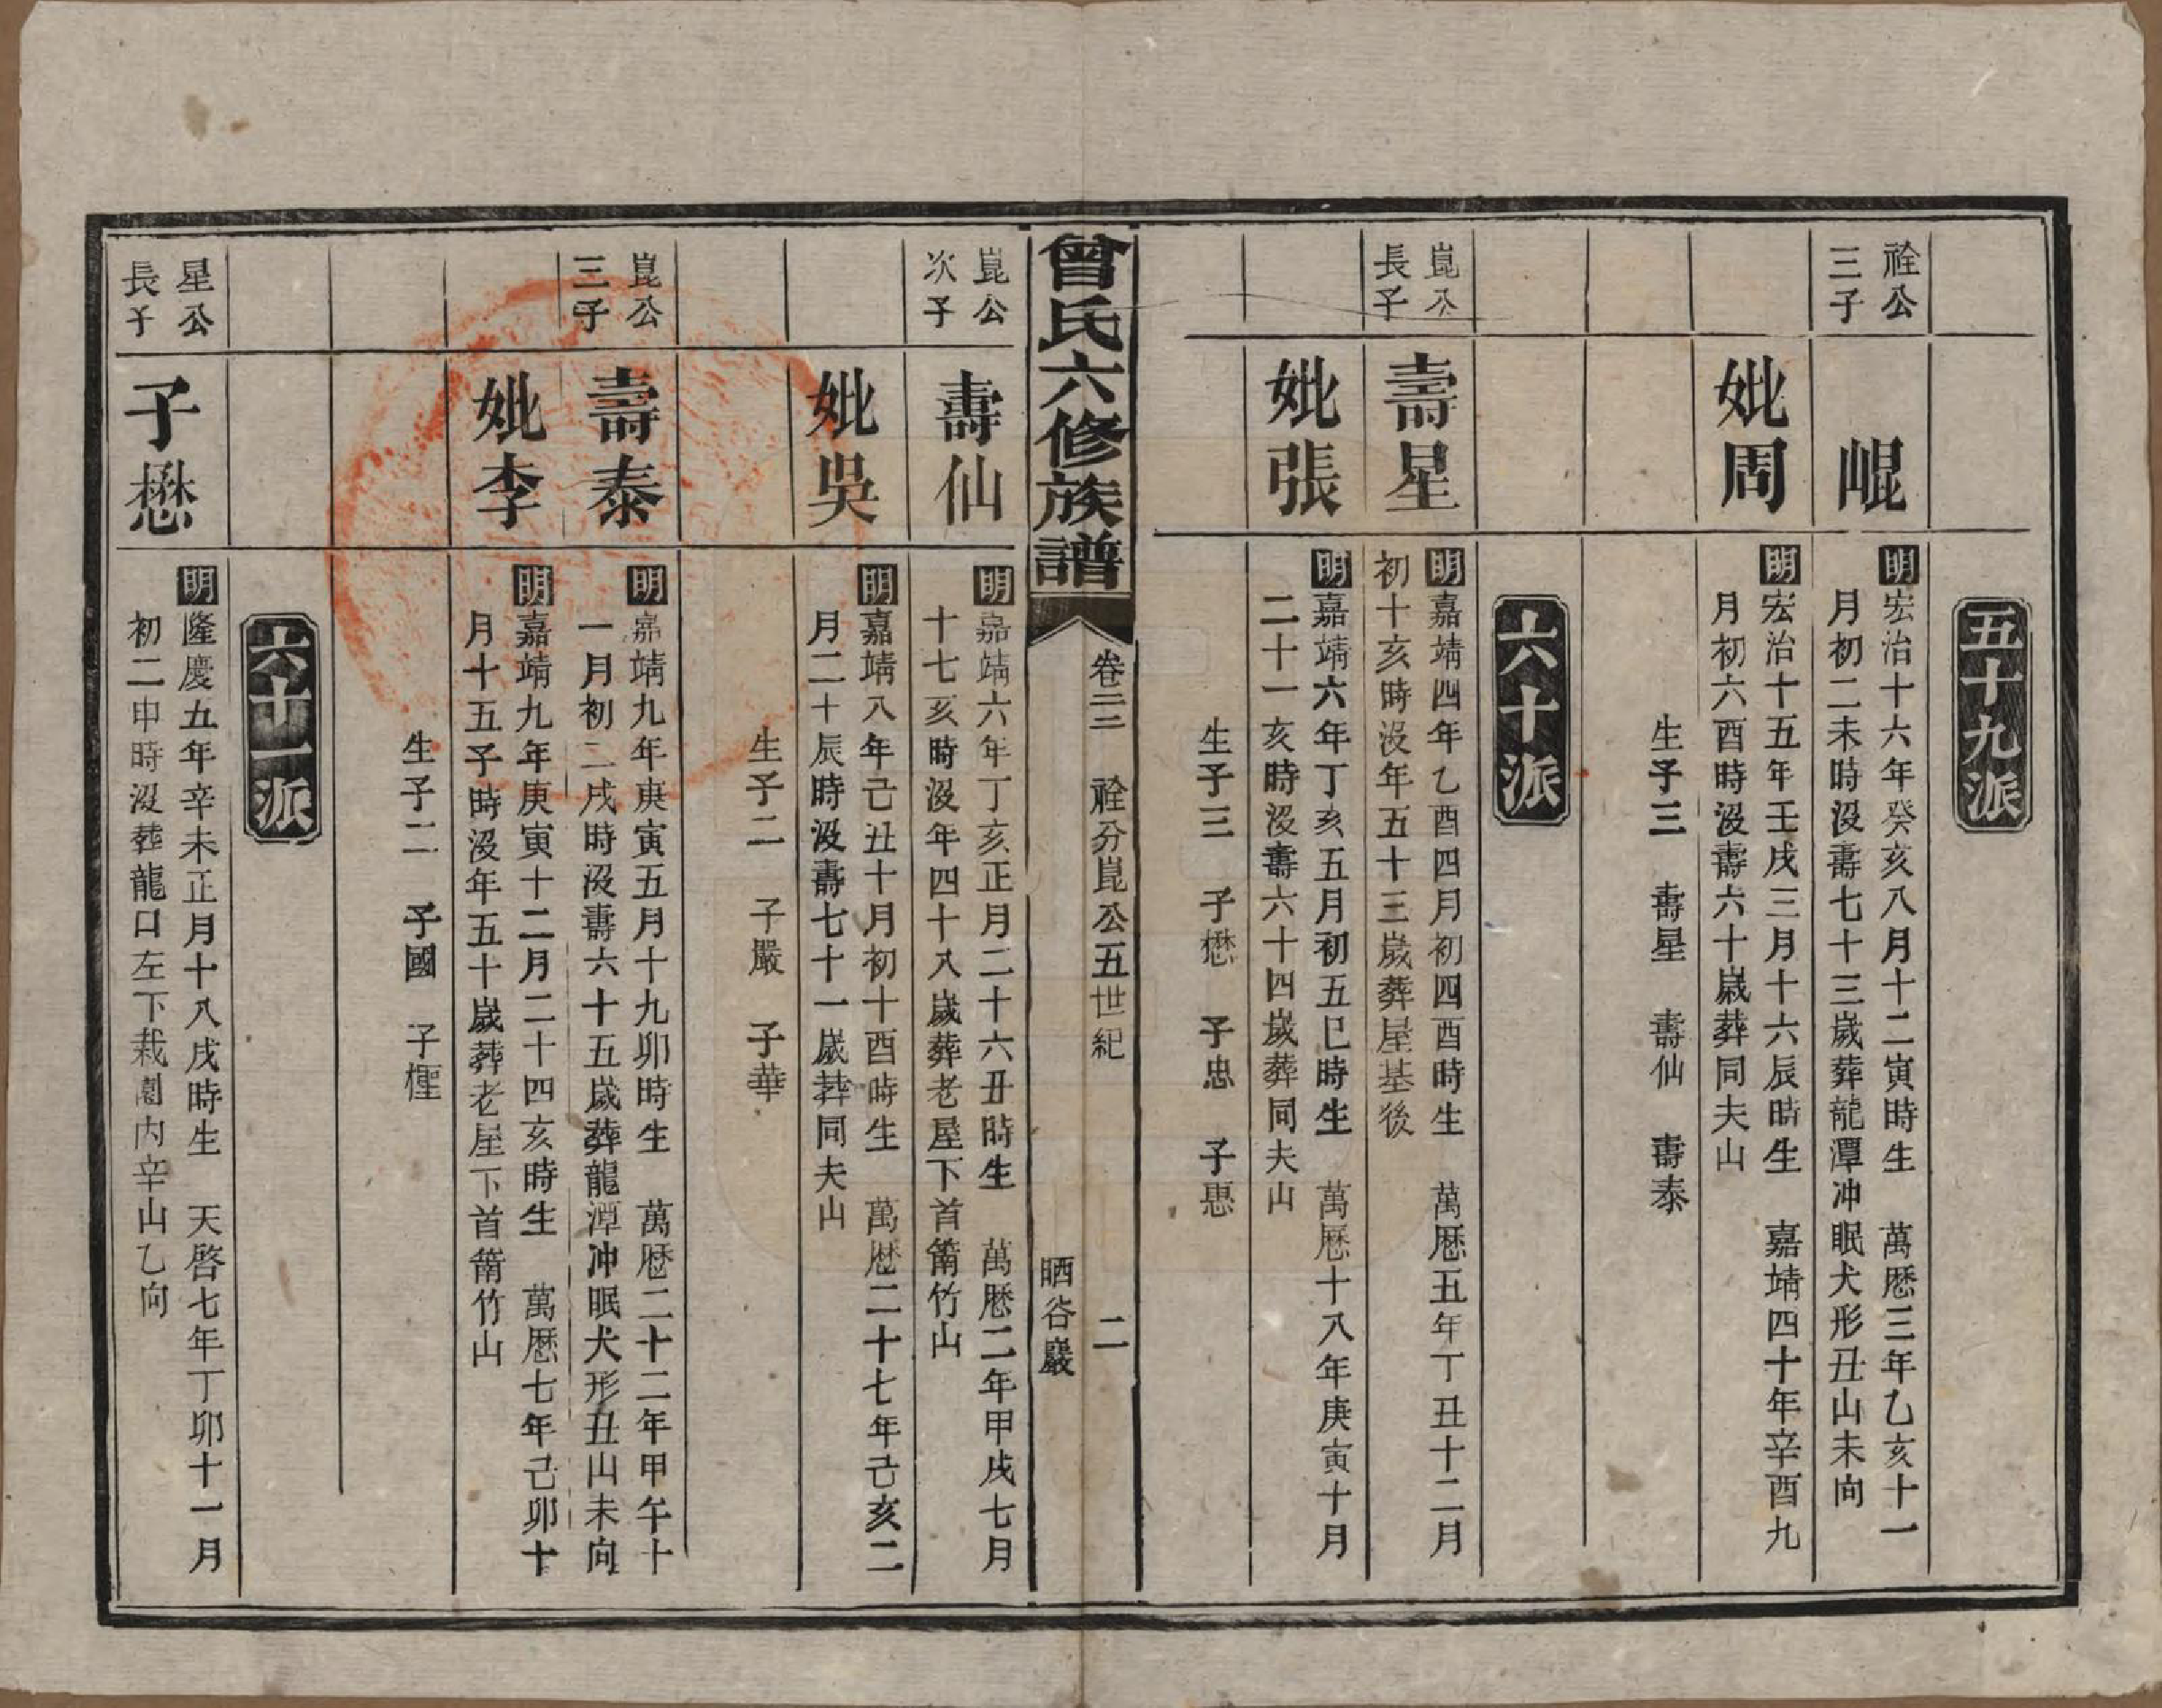 五十九派
祿公
三子
崐
明宏治十六年癸亥八月十二寅時生　萬厯三年乙亥十一
月初二未時沒壽七十三歲葬龍潭冲眠犬形丑山未向
妣周
明宏治十五年壬戌三月十六辰時生　嘉靖四十年辛酉九
月初六酉時沒壽六十歲葬同夫山
生子三　壽星　壽仙　壽泰
六十派
崑公
長子
壽星
明嘉靖四年乙酉四月初四酉時生　萬厯五年丁丑十二月
初十亥時沒年五十三歲葬屋基後
妣張
明嘉靖六年丁亥五月初五巳時生　萬厯十八年庚寅十月
二十一亥時沒壽六十四歲葬同夫山
生子三　子懋　子忠　子惠
曾氏六修族譜
卷三二　分崑公五世紀　二
晒谷巖
崑公
次子
壽仙
明嘉靖六年丁亥正月二十六丑時生　萬厯二年甲戌七月
十七亥時沒年四十八歲葬老屋下首筩竹山
妣吳
明嘉靖八年己丑十月初十酉時生　萬厯二十七年己亥二
月二十辰時沒壽七十一歲葬同夫山
生子二　子嚴　子華
崑公
三子
壽泰
明嘉靖九年庚寅五月十九卯時生　萬厯二十二年甲午十
一月初二戌時沒壽六十五歲葬龍潭冲眠犬形丑山未向
妣李
明嘉靖九年庚寅十二月二十四亥時生　萬厯七年己卯十
月十五子時沒年五十歲葬老屋下首筩竹山
生子二　子國　子檉
六十一派
星公
長子
子懋
明隆慶五年辛未正月十八戌時生　天啓七年丁卯十一月
初二申時沒葬龍口左下栽園內辛山乙向